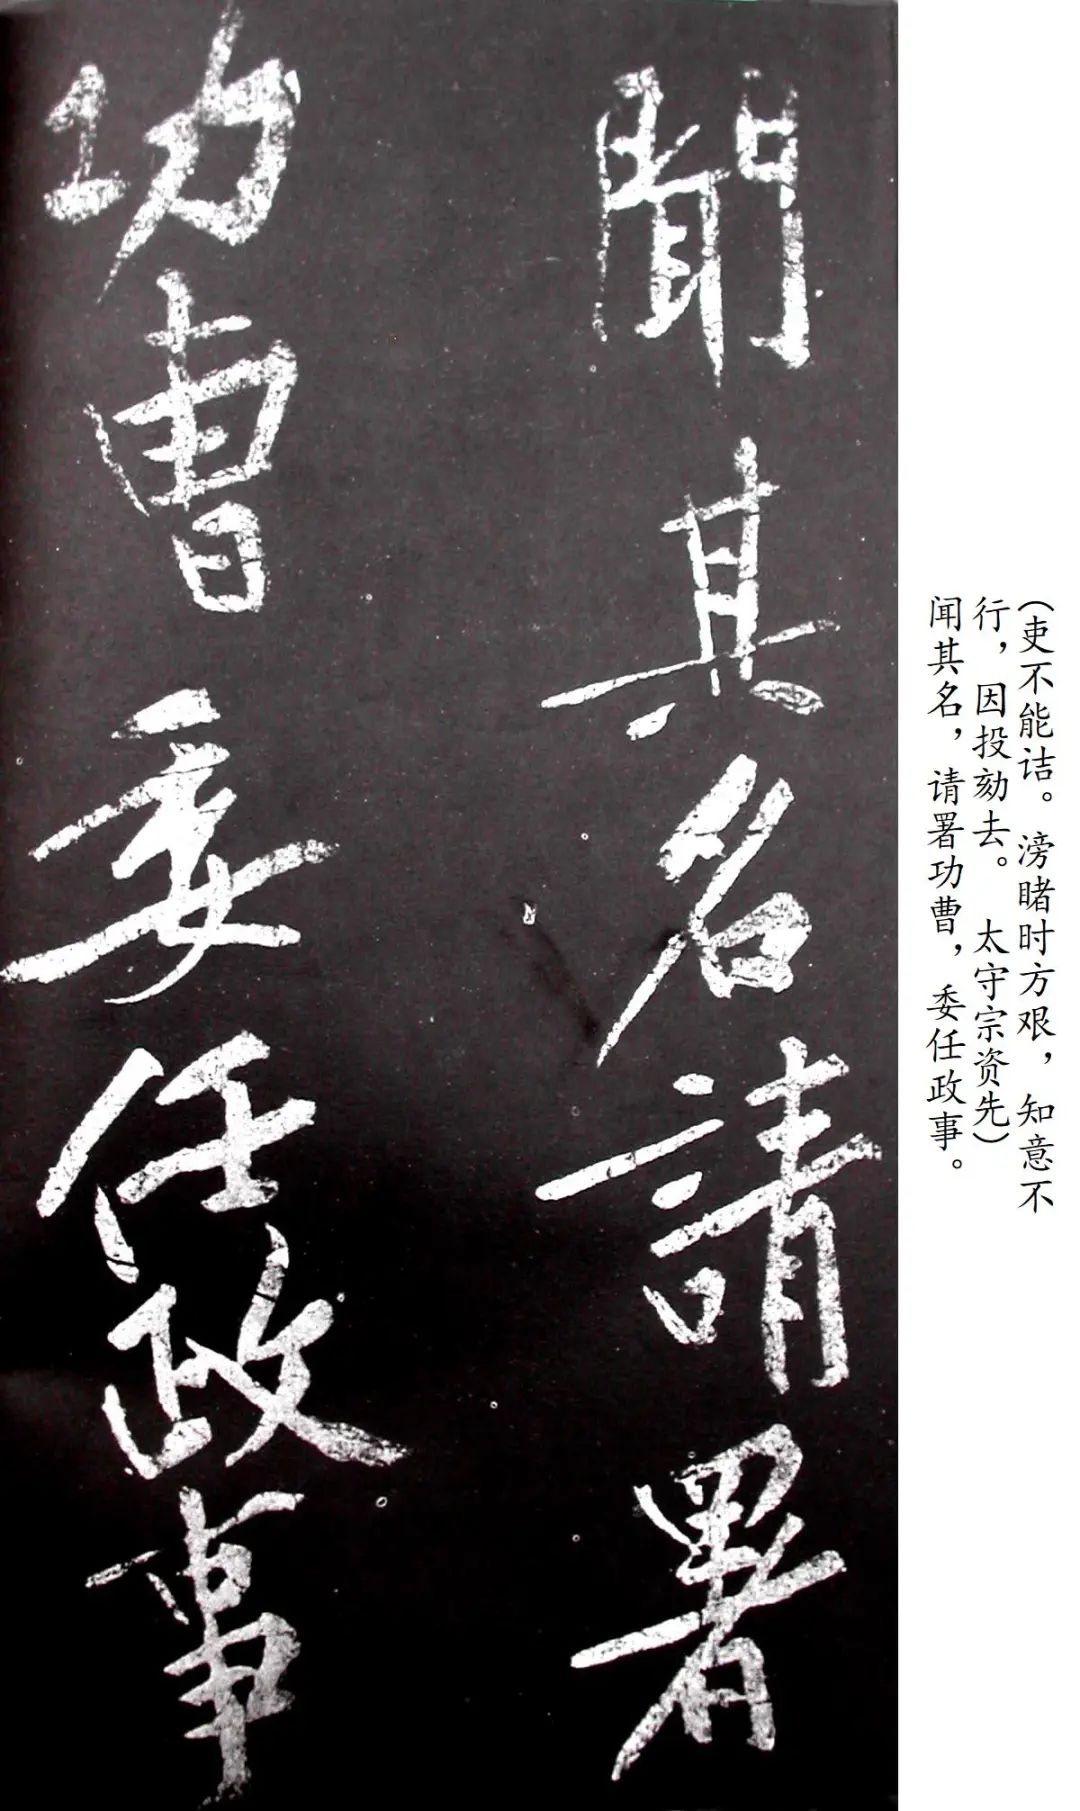 (吏不能诘。滂睹时方艰，知意不
行，因投劾去。太守宗资先)
闻其名，请署功曹，委任政事。
聞其名請署
功曹委任政事